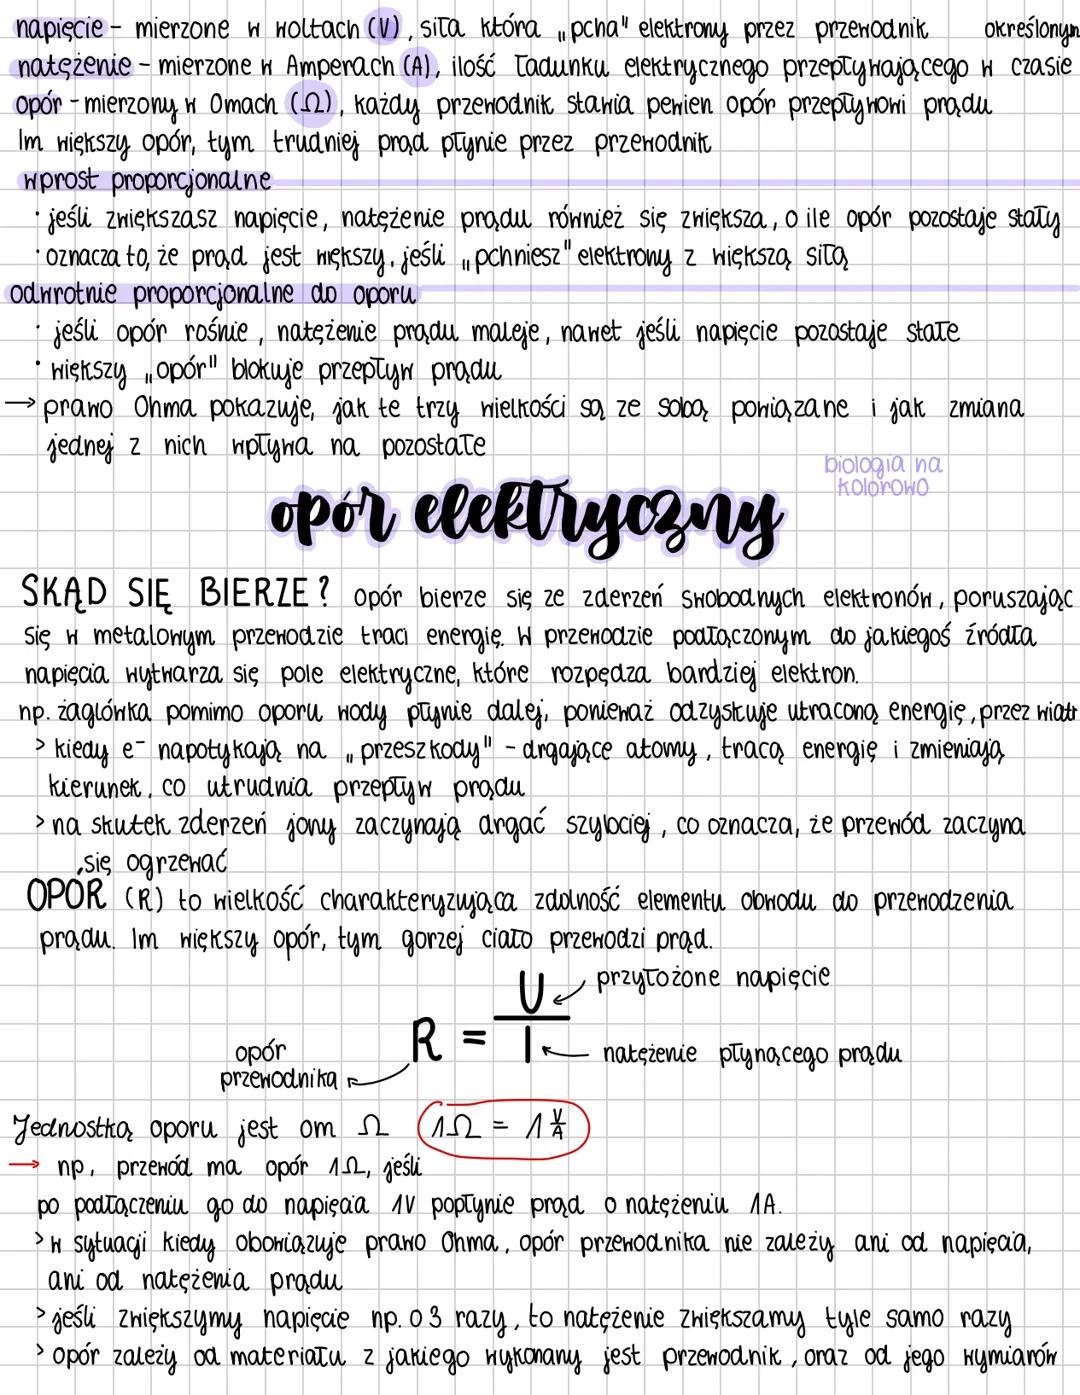 napięcie - mierzone w woltach (V), siła która „pcha" elektrony przez przewodnik określonym
natężenie - mierzone w Amperach (A), ilość ładunku elektrycznego przepływającego w czasie
opór - mierzony w Omach (Ω), każdy przewodnik stawia pewien opór przepływowi prądu
Im większy opór, tym trudniej prąd płynie przez przewodnik
wprost proporcjonalne
· jeśli zwiększasz napięcie, natężenie prądu również się zwiększa, o ile opór pozostaje stały
· oznacza to, że prąd jest większy, jeśli „pchniesz" elektrony z większą siłą
odwrotnie proporcjonalne do oporu
· jeśli opór rośnie, natężenie prądu maleje, nawet jeśli napięcie pozostaje stałe
· większy „opór" blokuje przepływ prądu
→ prawo Ohma pokazuje, jak te trzy wielkości są ze sobą powiązane i jak zmiana
jednej z nich wpływa na pozostałe
biologia na
kolorowo
opór elektryczny
SKĄD SIĘ BIERZE? opór bierze się ze zderzeń swobodnych elektronów, poruszając
się w metalowym przewodzie traci energię. W przewodzie podłączonym do jakiegoś źródła
napięcia wytwarza się pole elektryczne, które rozpędza bardziej elektron.
np. żaglówka pomimo oporu wody płynie dalej, ponieważ odzyskuje utraconą energię, przez wiatr
> kiedy e⁻ napotykają na „przeszkody" - drgające atomy, tracą energię i zmieniają
kierunek, co utrudnia przepływ prądu
> na skutek zderzeń jony zaczynają drgać szybciej, co oznacza, że przewód zaczyna
się ogrzewać
OPÓR (R) to wielkość charakteryzująca zdolność elementu obwodu do przewodzenia
prądu. Im większy opór, tym gorzej ciało przewodzi prąd.
U przyłożone napięcie
R = —
I natężenie płynącego prądu
opór
przewodnika
Jednostką oporu jest om Ω 1Ω = 1 V/A
→ np. przewód ma opór 1Ω, jeśli
po podłączeniu go do napięcia 1V popłynie prąd o natężeniu 1A.
> w sytuacji kiedy obowiązuje prawo Ohma, opór przewodnika nie zależy ani od napięcia,
ani od natężenia prądu
> jeśli zwiększymy napięcie np. o 3 razy, to natężenie zwiększamy tyle samo razy
> opór zależy od materiału z jakiego wykonany jest przewodnik, oraz od jego wymiarów